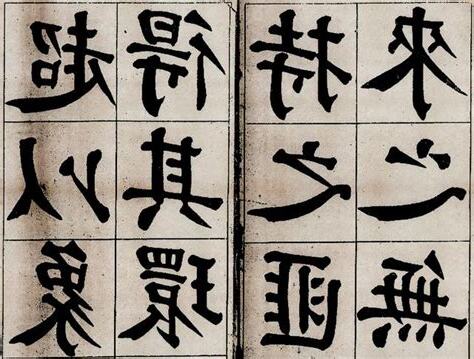 超以象
得其環
持之匪
來之無